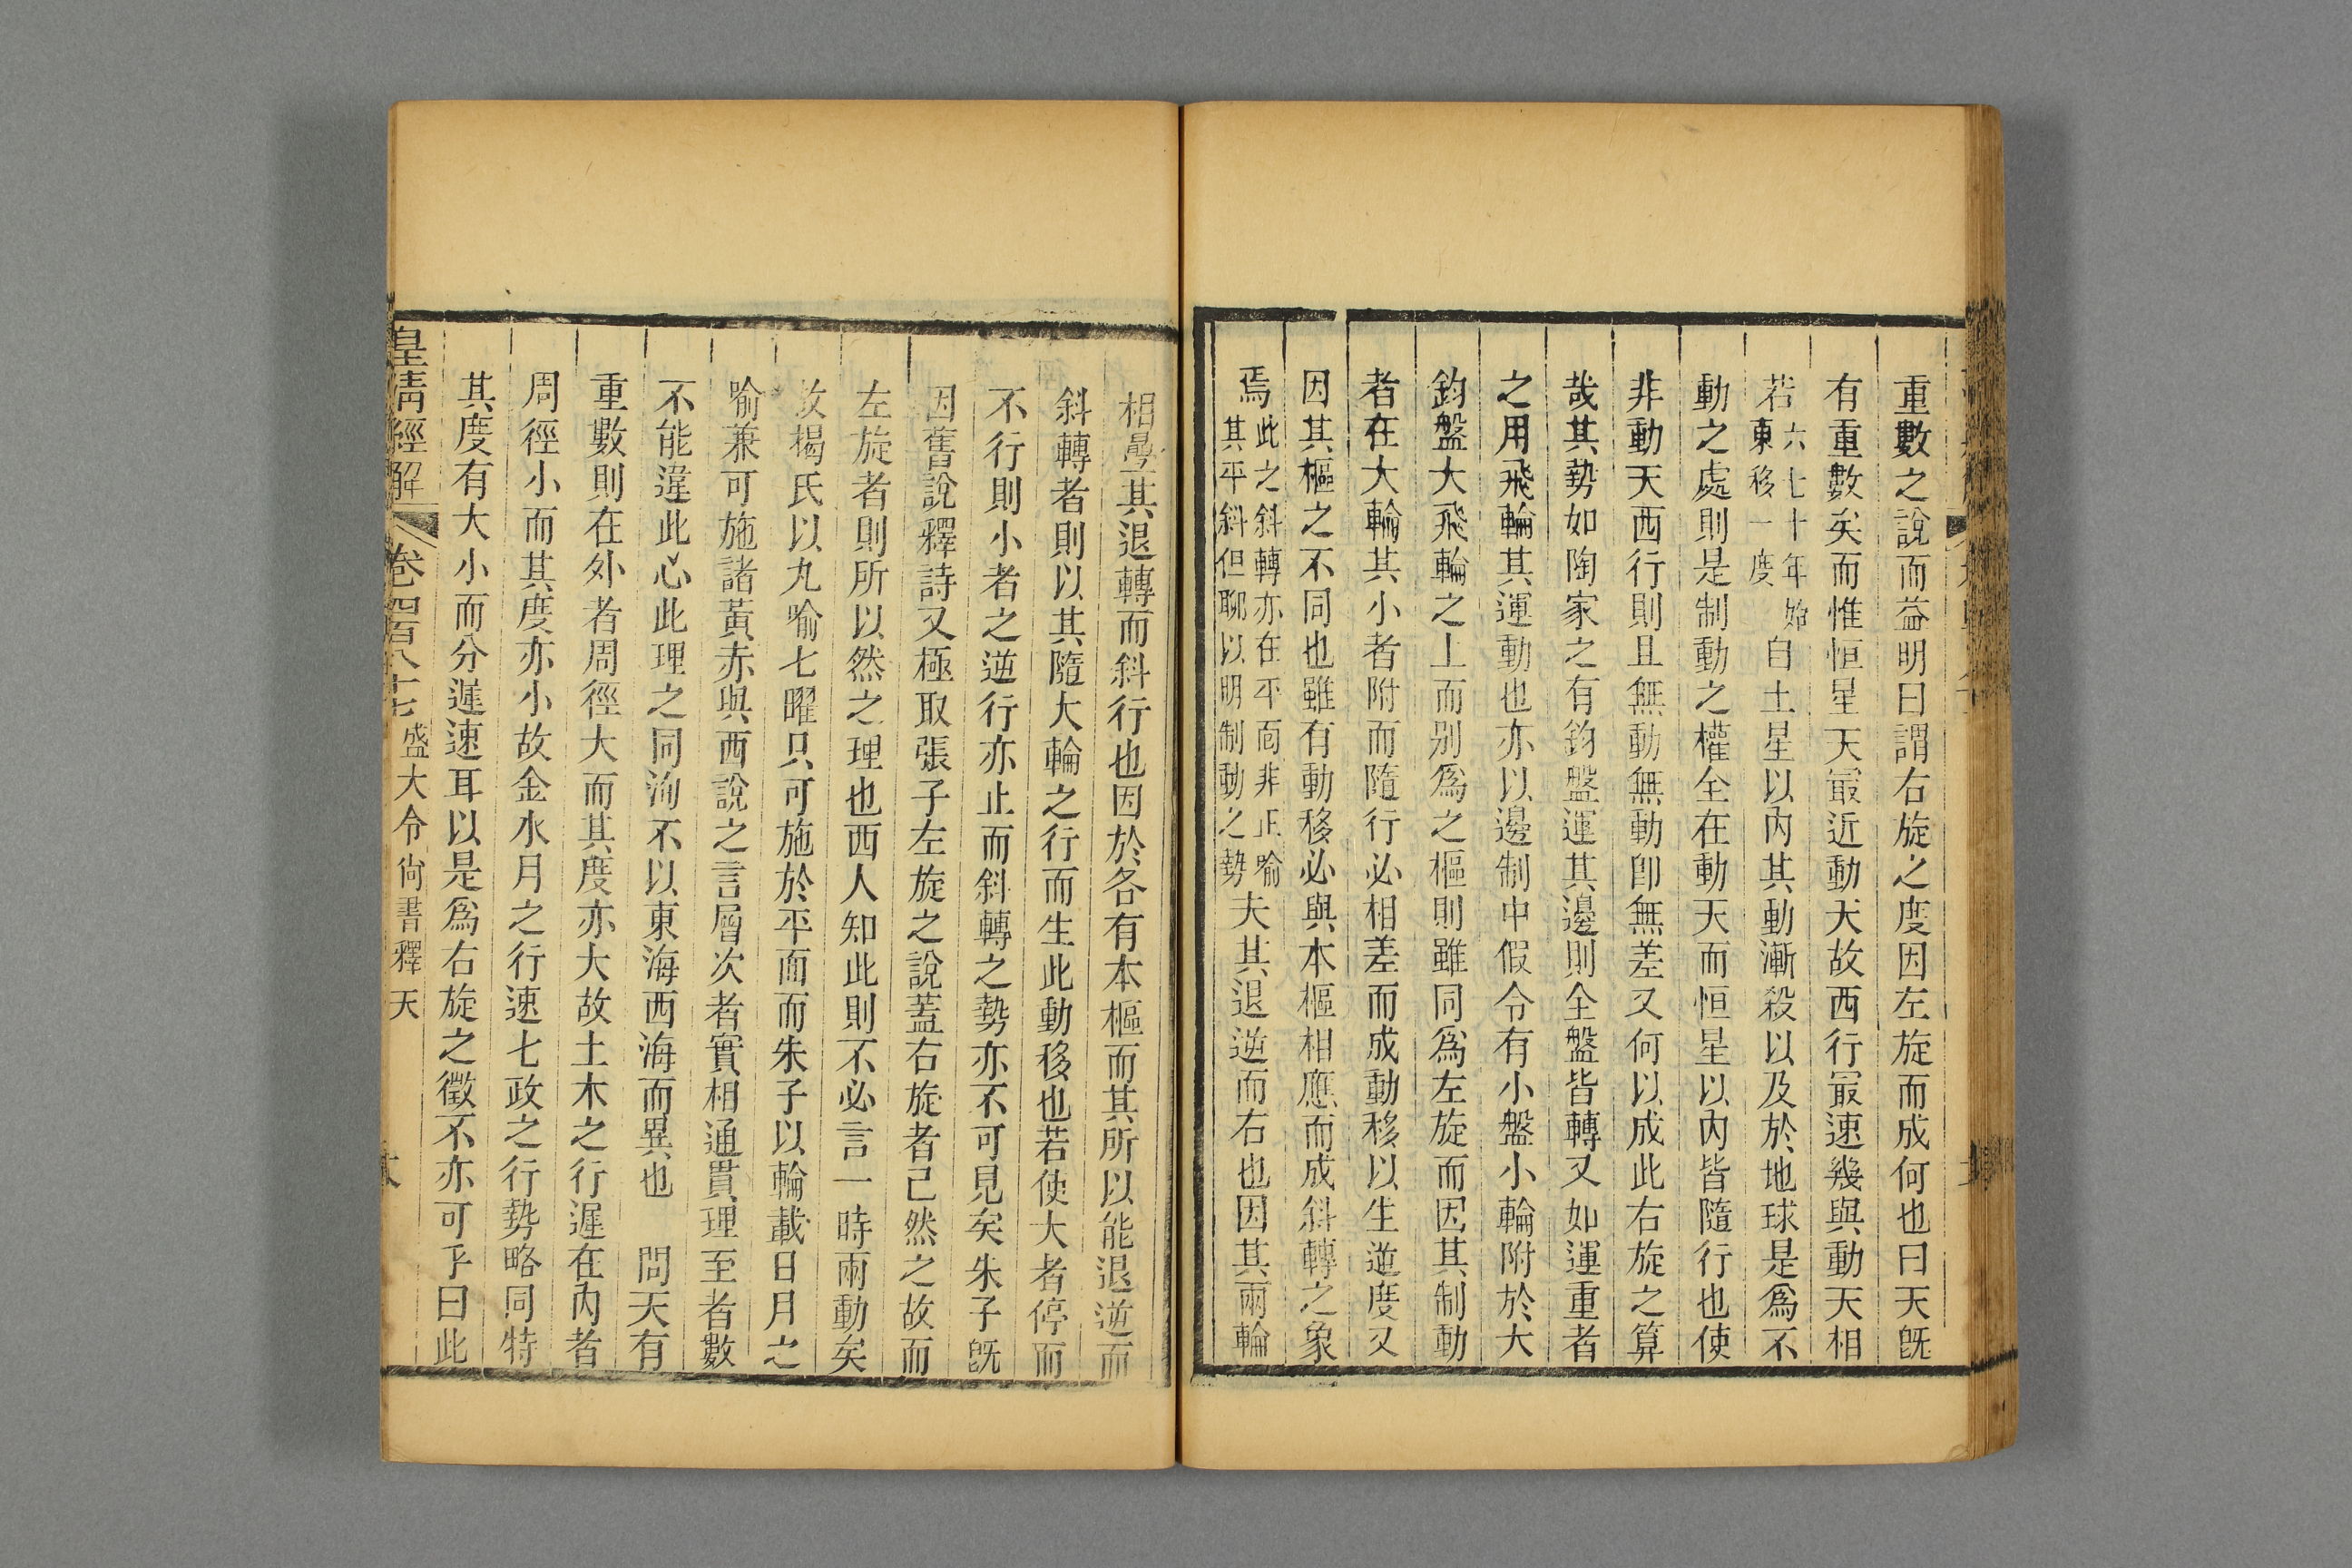 重數之說而益明曰謂右旋之度因左旋而成何也曰天旣
有重數矣而惟恒星天最近動天故西行最速幾與動天相
若六七十年始東移一度自土星以內其動漸殺以及於地球是爲不
動之處則是制動之權全在動天而恒星以內皆隨行也使
非動天西行則且無動無動卽無差又何以成此右旋之算
哉其勢如陶家之有鈞盤運其邊則全盤皆轉又如運重者
之用飛輪其運動也亦以邊制中假令有小盤小輪附於大
鈞盤大飛輪之上而别爲之樞則雖同爲左旋而因其制動
者在大輪其小者附而隨行必相差而成動移以生逆度又
因其樞之不同也雖有動移必與本樞相應而成斜轉之象
焉此之斜轉亦在平面非正喻其平斜但聊以明制動之勢夫其退逆而右也因其兩輪
相疊其退轉而斜行也因於各有本樞而其所以能退逆而
斜轉者則以其隨大輪之行而生此動移也若使大者停而
不行則小者之逆行亦止而斜轉之勢亦不可見矣朱子旣
因舊說釋詩又極取張子左旋之說蓋右旋者已然之故而
左旋者則所以然之理也西人知此則不必言一時兩動矣
故楊氏以丸喻七曜只可施於平面而朱子以輪載日月之
喻兼可施諸黃赤與西說之言層次者實相通貫理至者數
不能違此心此理之同洵不以東海西海而異也　問天有
重數則在外者周徑大而其度亦大故土木之行遲在內者
周徑小而其度亦小故金水月之行速七政之行勢略同特
其度有大小而分遲速耳以是爲右旋之徵不亦可乎曰此
皇淸經解 卷四百八十七 盛大令尙書釋天